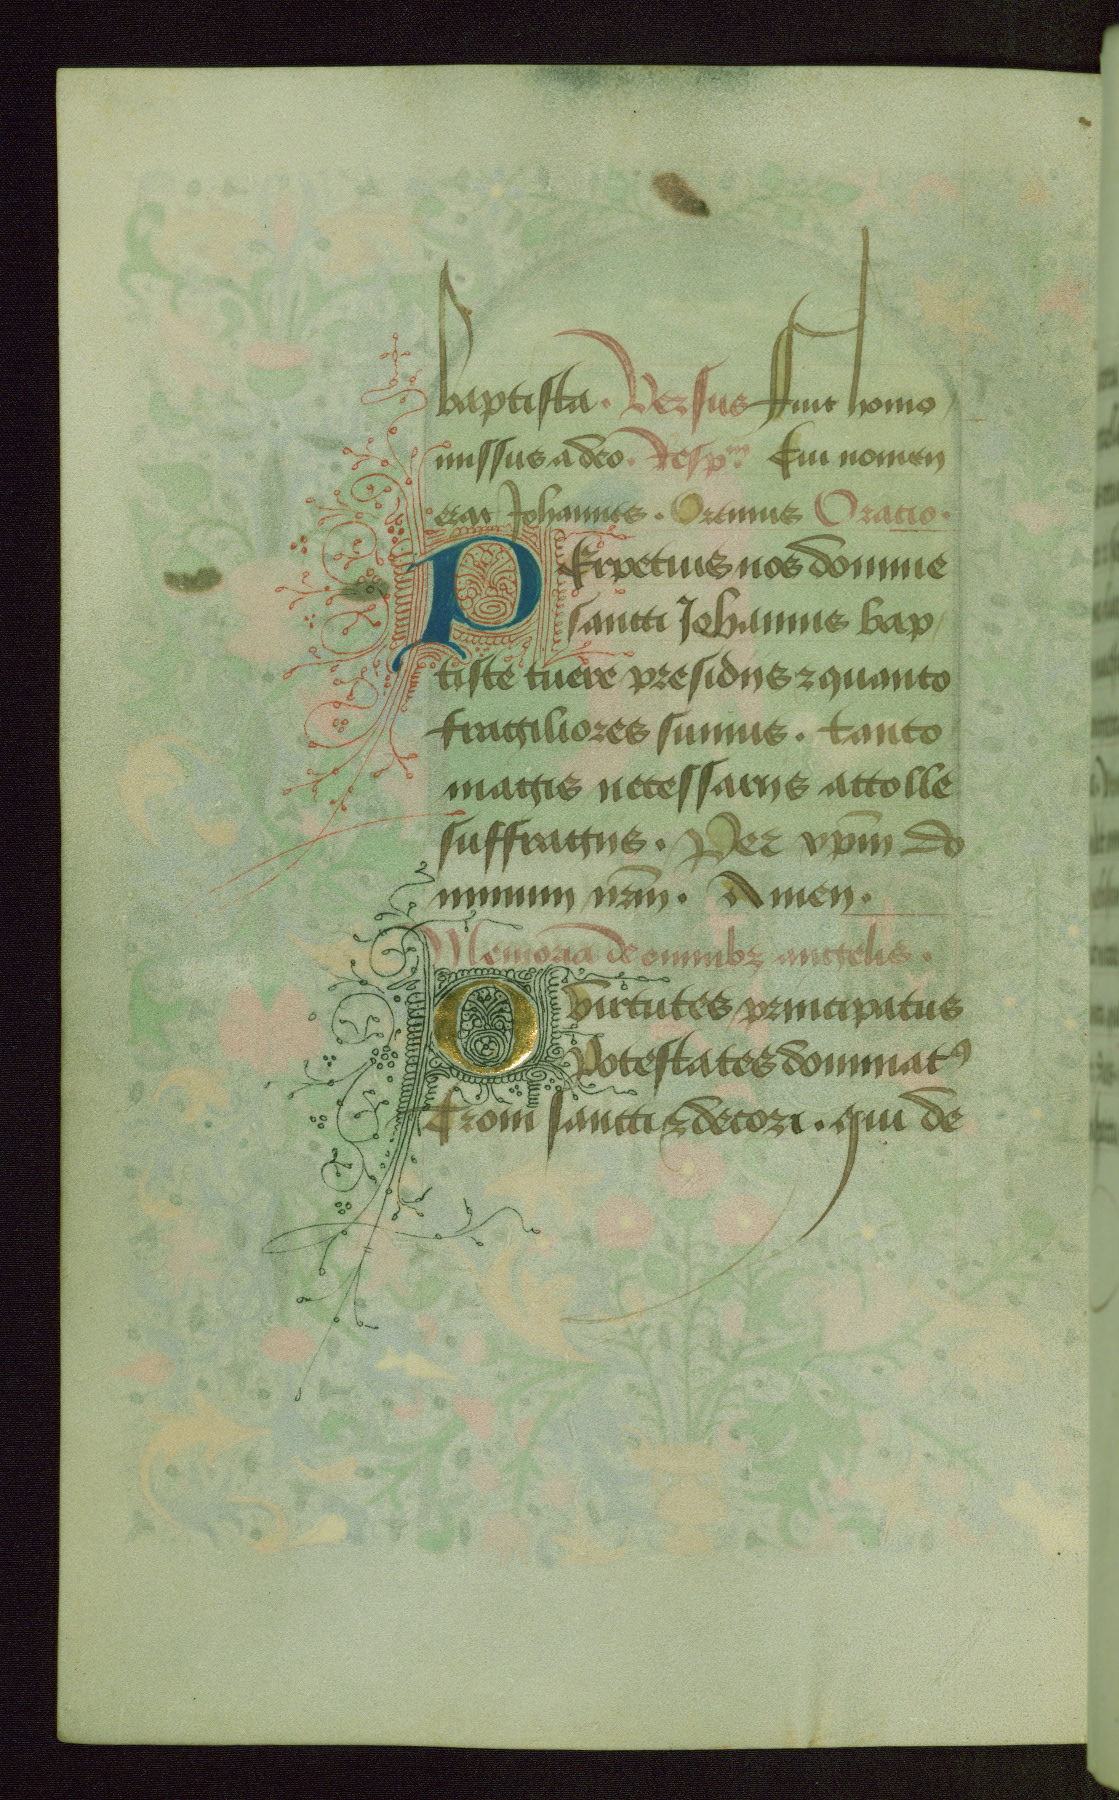 baptista. Versus Fuit homo
missus a deo. Resp. Cui nomen
erat Johannes. Oremus Oratio.
PErpetuis nos domine
sancti Johannis bap
tiste tuere presidiis ⁊ quanto
fragiliores sumus. tanto
magis necessariis attolle
suffragiis. Per xp̄m do
minum nr̄m. Amen.
Memoria de omnibꝫ angelis.
O virtutes principatus
Potestates dominatꝰ
Troni sancti ⁊ decori. qui de